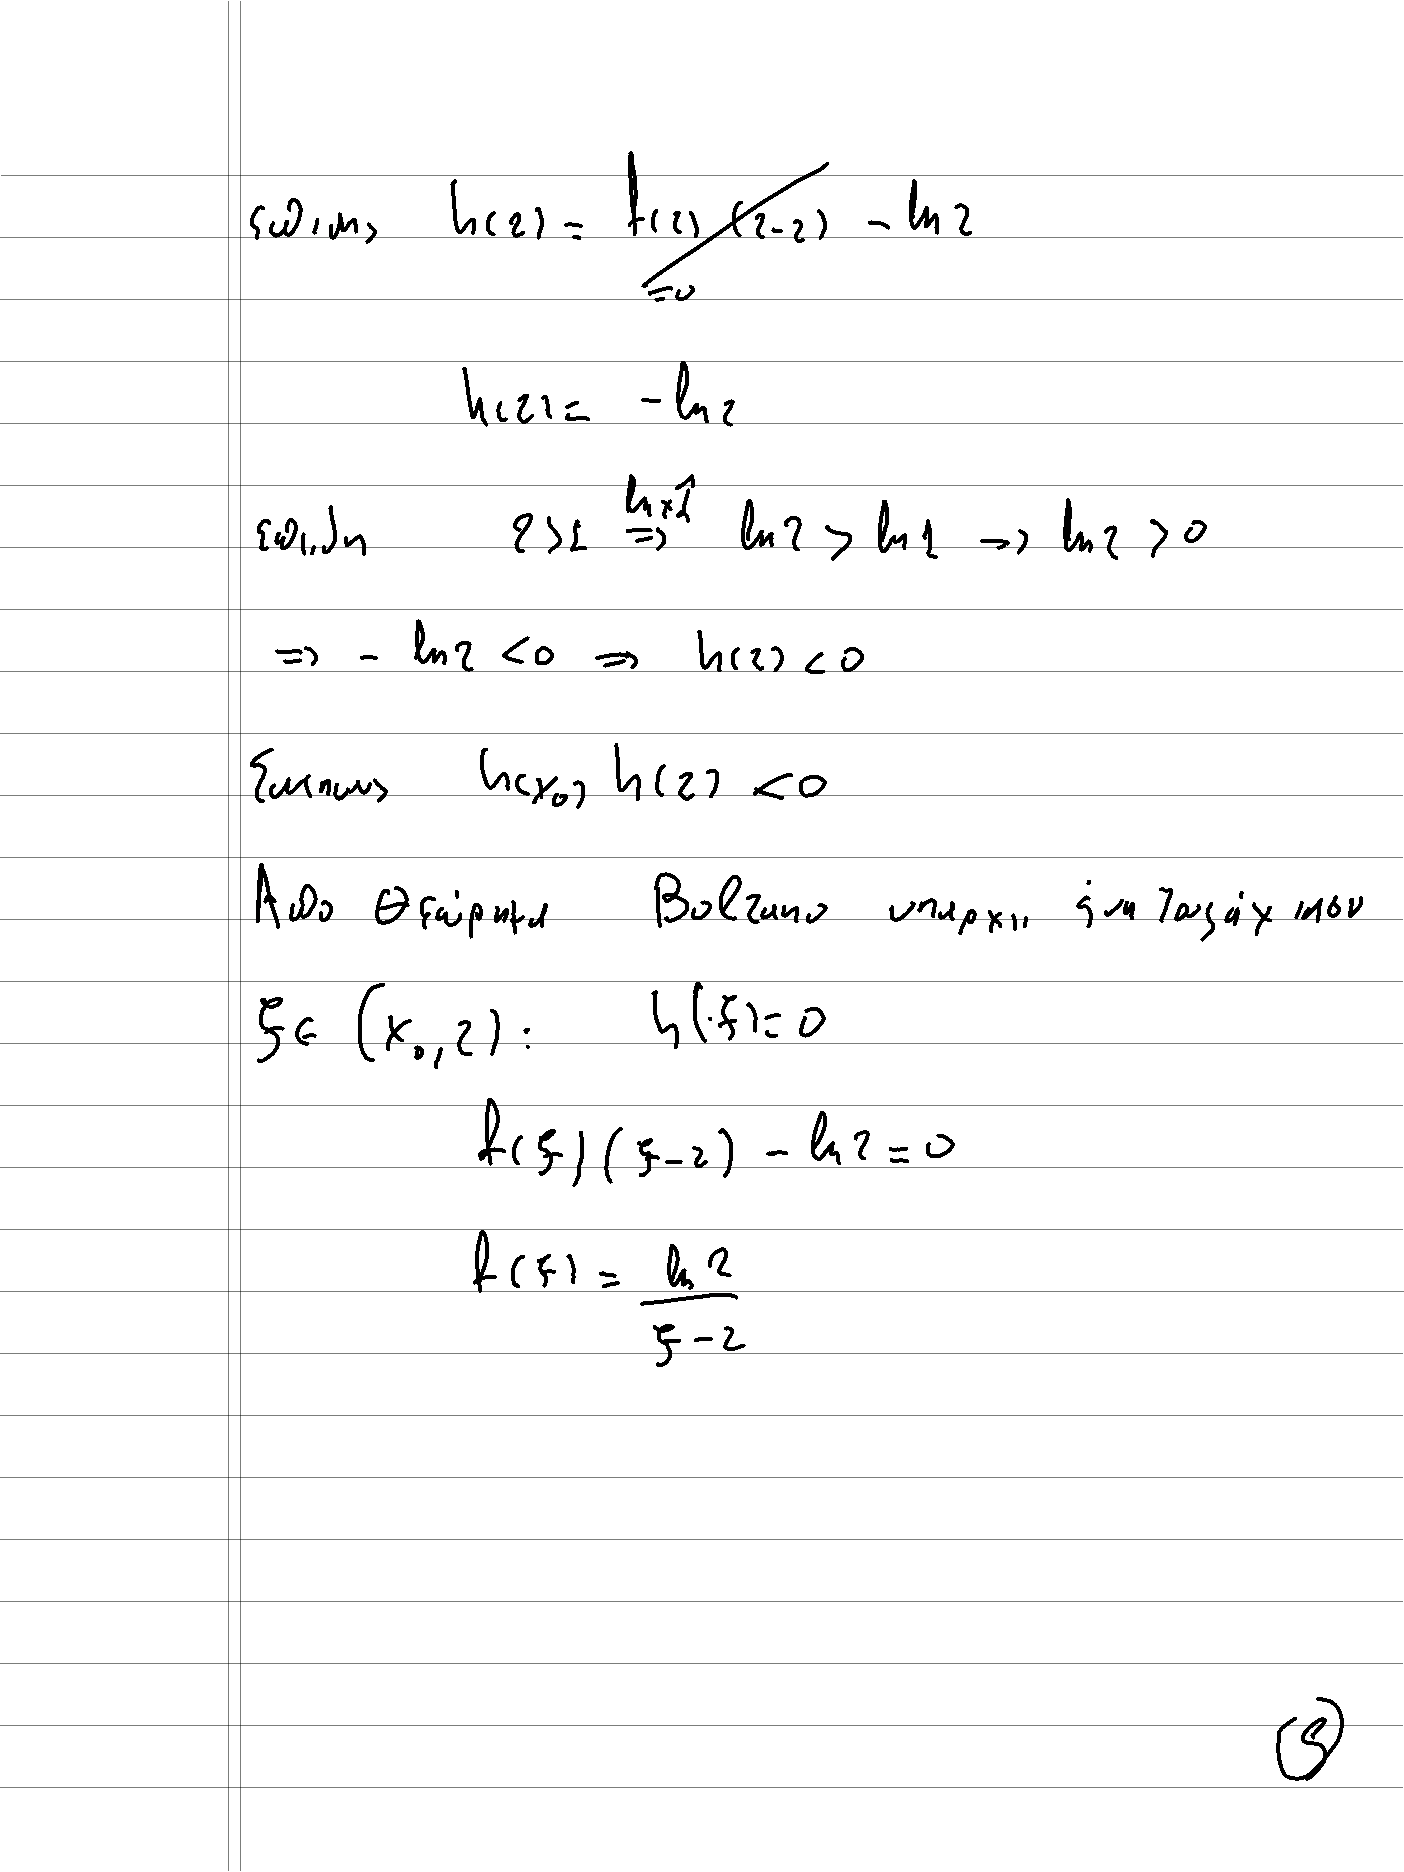 επίσης h(2) = f(2) (2-2) - ln 2
=0
h(2) = - ln 2
επειδή 2>1 lnx↑ ⇒ ln 2 > ln 1 ⇒ ln 2 > 0
⇒ - ln 2 < 0 ⇒ h(2) < 0
h(x₀) h(2) < 0
Από Θεώρημα Bolzano υπαρχει ένα τουλάχιστον
ξ ∈ (x₀, 2) : h(ξ) = 0
f(ξ) (ξ-2) - ln 2 = 0
f(ξ) = ln 2
ξ - 2
5